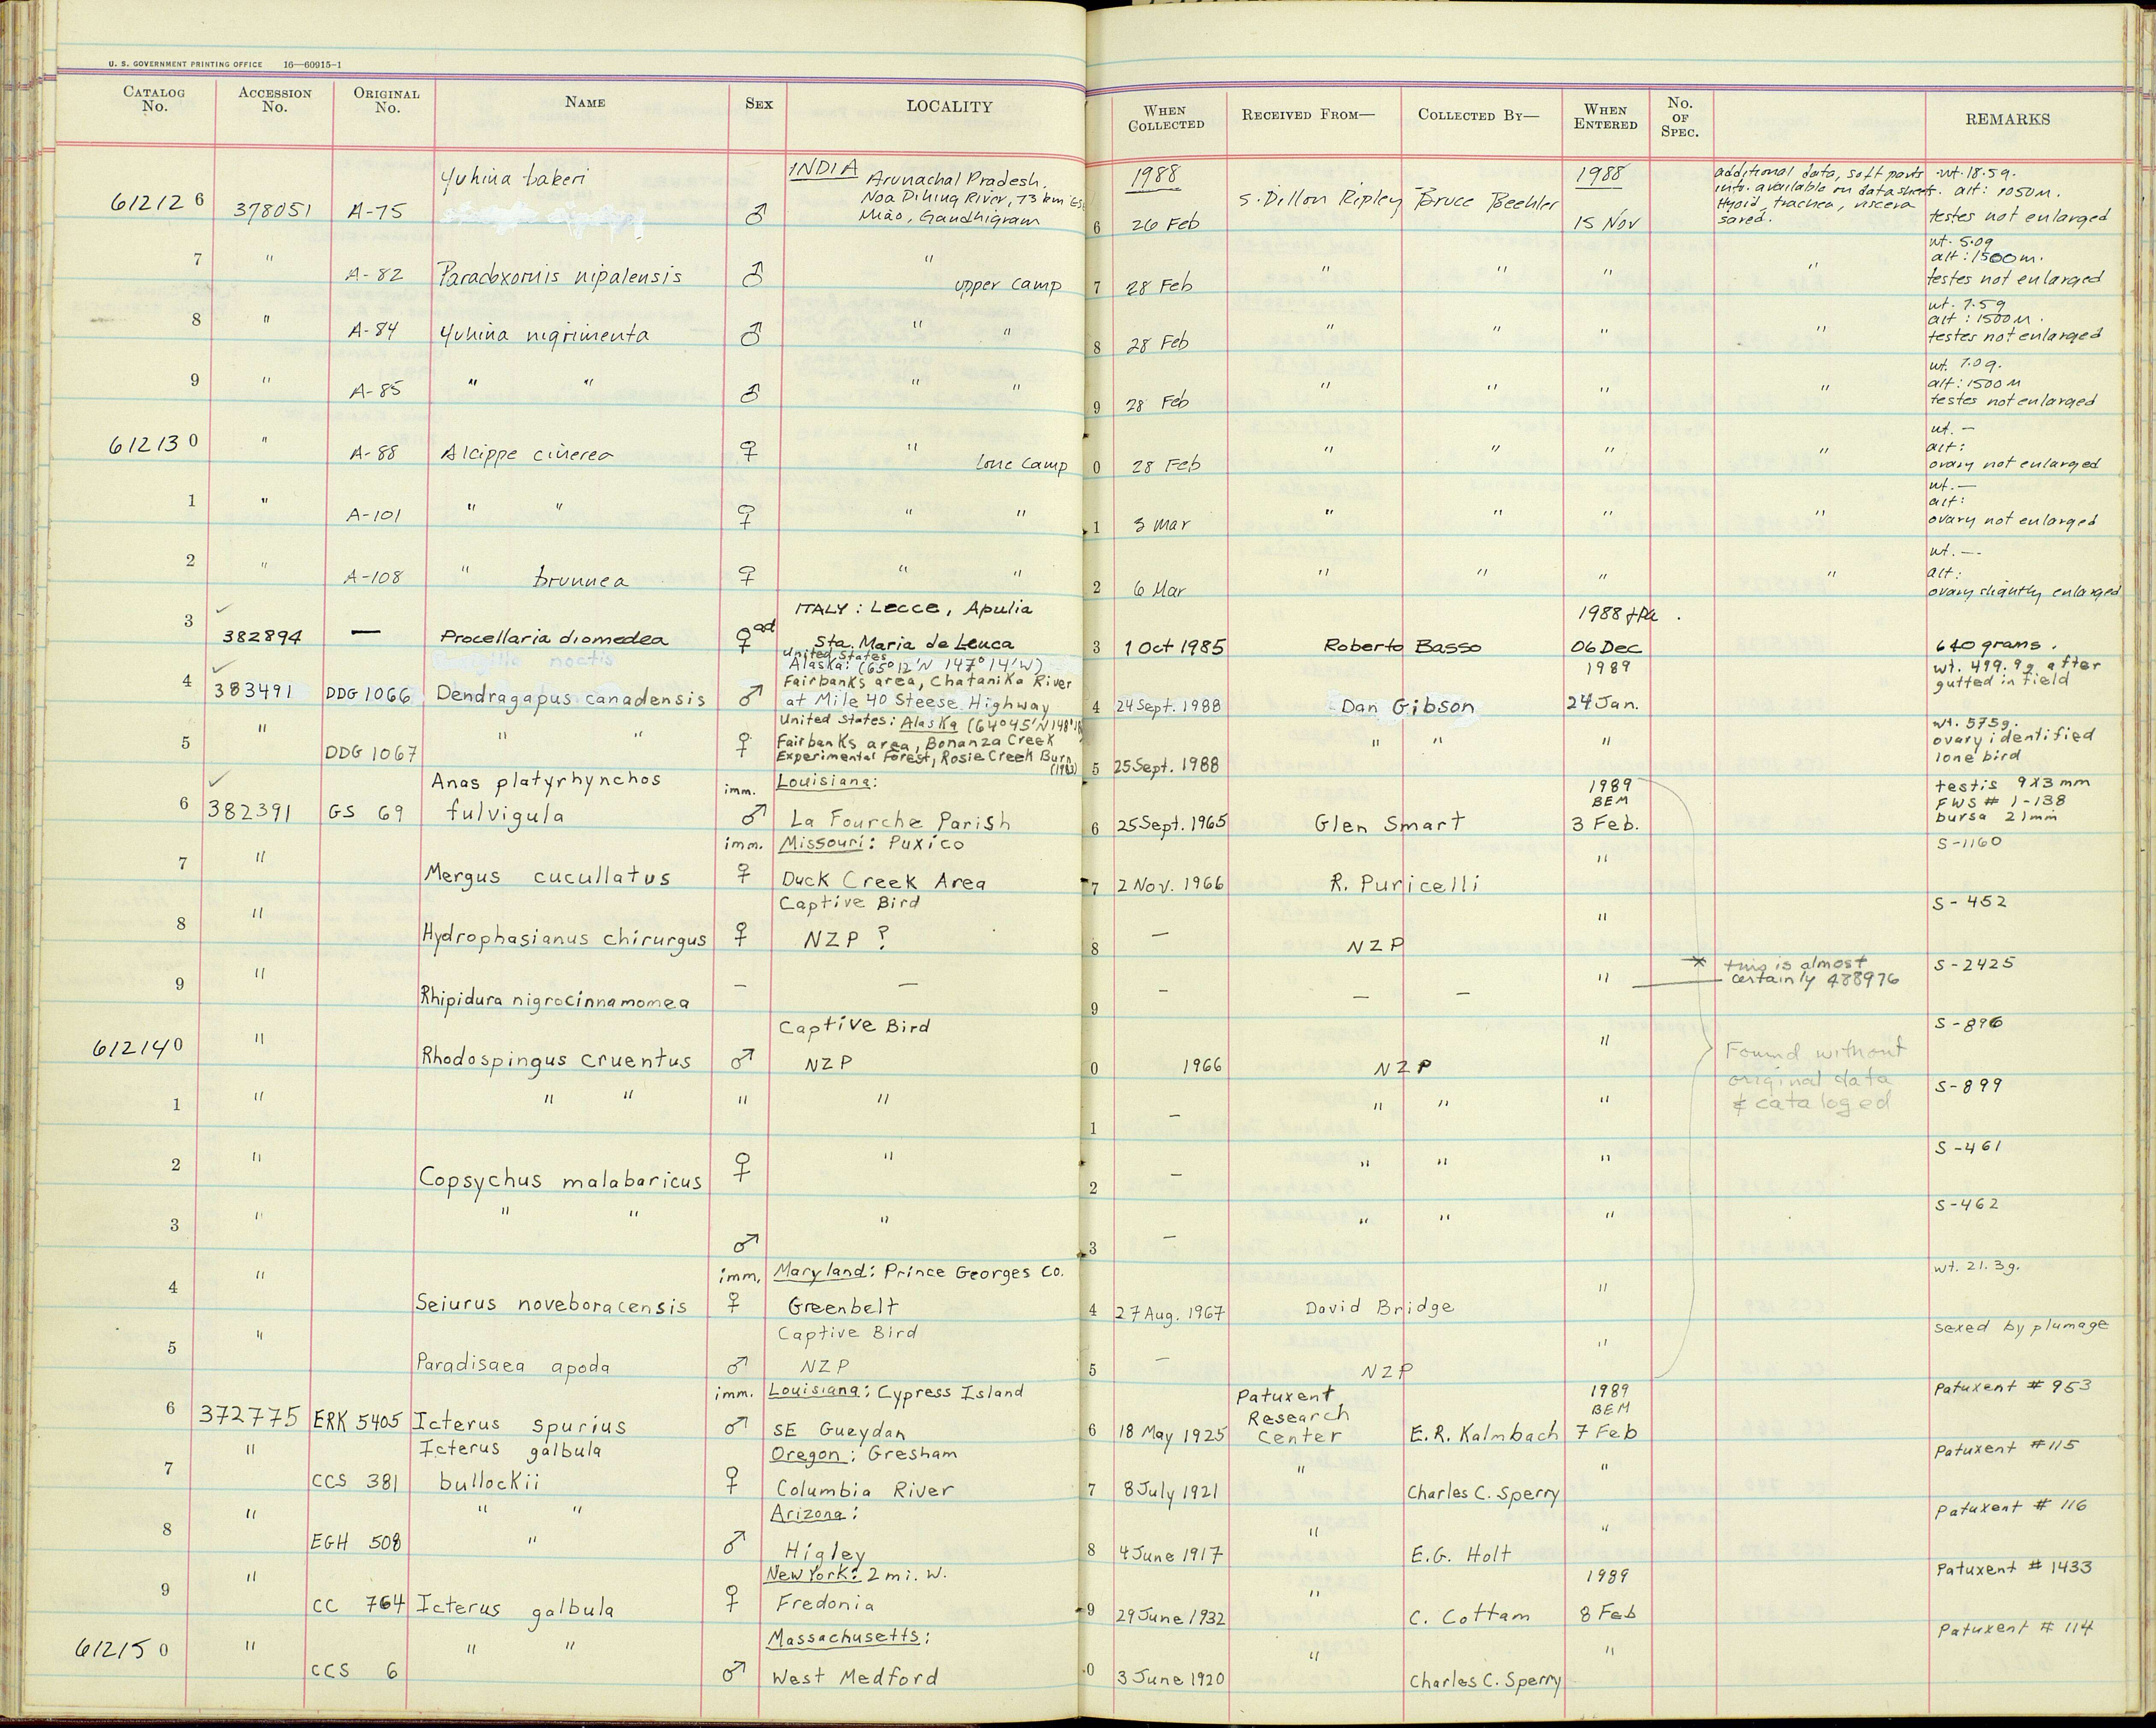 U. S. GOVERNMENT PRINTING OFFICE 16—60915-1
CATALOG No. ACCESSION No. ORIGINAL No. NAME SEX LOCALITY WHEN COLLECTED RECEIVED FROM— COLLECTED BY— WHEN ENTERED No. OF SPEC. REMARKS
Yuhina bakeri INDIA Arunachal Pradesh, 1988 1988 additional data, soft parts wt. 18.5g.
Noa Dihing River, 73 km info. available on datasheets. alt: 1050m.
612126 378051 A-75 ♂ Miao, Gandhigram 6 26 Feb S. Dillon Ripley Bruce Beehler 15 Nov Hyoid, trachea, viscera saved. testes not enlarged
wt. 5.0g
alt: 1500m.
7 " A-82 Paradoxornis nipalensis ♂ " upper camp 7 28 Feb " " " " testes not enlarged
wt. 7.5g
alt: 1500m.
8 " A-84 Yuhina nigrimenta ♂ " " 8 28 Feb " " " " testes not enlarged
wt. 7.0g.
alt: 1500m
9 " A-85 " " ♂ " " 9 28 Feb " " " " testes not enlarged
wt. —
alt:
612130 " A-88 Alcippe cinerea ♀ " camp 0 28 Feb " " " " ovary not enlarged
wt. —
alt:
1 " A-101 " " ♀ " " 1 3 Mar " " " " ovary not enlarged
wt. —
alt:
2 " A-108 " brunnea ♀ " " 2 6 Mar " " " " ovary slightly enlarged
ITALY: Lecce, Apulia 1988
3 382894 — Procellaria diomedea ♀ad Sta. Maria de Leuca 3 1 Oct 1985 Roberto Basso 06 Dec 640 grams.
United States
Alaska: (65°12'N 147°14'W) 1989 wt. 499.9g after
Fairbanks area, Chatanika River gutted in field
4 383491 DDG 1066 Dendragapus canadensis ♂ at Mile 40 Steese Highway 4 24 Sept. 1988 Dan Gibson 24 Jan.
United States: Alaska (64°45'N 148° wt. 575g.
Fairbanks area, Bonanza Creek ovary identified
5 " DDG 1067 " " ♀ Experimental Forest, Rosie Creek Burn (1983) 5 25 Sept. 1988 " " " lone bird
Anas platyrhynchos imm. Louisiana: 1989 BEM testis 9X3 mm
FWS # 1-138
6 382391 GS 69 fulvigula ♂ La Fourche Parish 6 25 Sept. 1965 Glen Smart 3 Feb. bursa 21mm
imm. Missouri: Puxico S-1160
7 " Mergus cucullatus ♀ Duck Creek Area 7 2 Nov. 1966 R. Puricelli "
Captive Bird S-452
8 " Hydrophasianus chirurgus ♀ NZP ? 8 — NZP "
9 " Rhipidura nigrocinnamomea — — 9 — — — " * this is almost certainly 488976 S-2425
Captive Bird S-896
612140 " Rhodospingus cruentus ♂ NZP 0 1966 NZP "
Found without
original data
& cataloged
1 " " " " " 1 — " " " S-899
2 " Copsychus malabaricus ♀ " 2 — " " " S-461
3 " " " ♂ " 3 — " " " S-462
imm. Maryland: Prince Georges Co. wt. 21.3g.
4 " Seiurus noveboracensis ♀ Greenbelt 4 27 Aug. 1967 David Bridge "
Captive Bird sexed by plumage
5 " Paradisaea apoda ♂ NZP 5 — NZP "
imm. Louisiana: Cypress Island Patuxent 1989 Patuxent # 953
Research BEM
6 372775 ERK 5405 Icterus spurius ♂ SE Gueydan 6 18 May 1925 Center E.R. Kalmbach 7 Feb
Icterus galbula Oregon: Gresham Patuxent #115
7 " CCS 381 bullockii ♀ Columbia River 7 8 July 1921 " Charles C. Sperry "
" " Arizona: Patuxent # 116
8 " EGH 508 " ♂ Higley 8 4 June 1917 " E.G. Holt "
New York: 2 mi. W. 1989 Patuxent # 1433
9 " CC 764 Icterus galbula ♀ Fredonia 9 29 June 1932 " C. Cottam 8 Feb
Massachusetts: Patuxent # 114
612150 " CCS 6 " " ♂ West Medford 0 3 June 1920 " Charles C. Sperry "